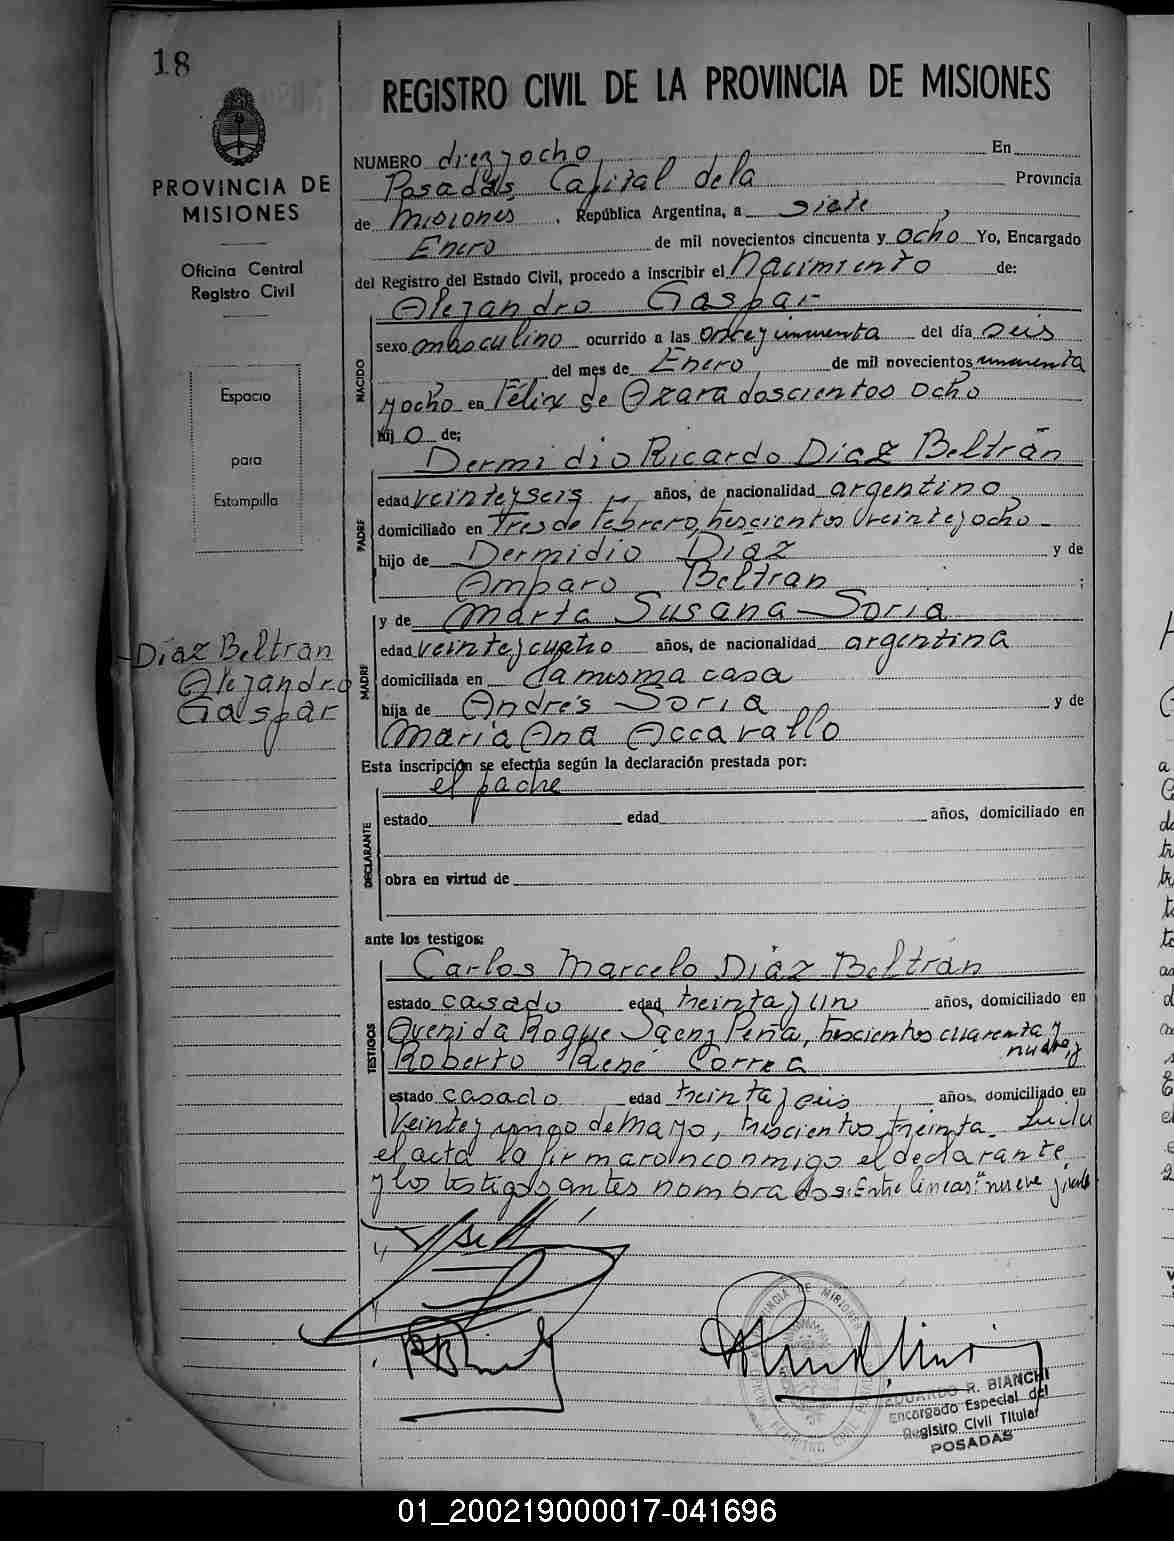 18
REGISTRO CIVIL DE LA PROVINCIA DE MISIONES
PROVINCIA DE
MISIONES
Oficina Central
Registro Civil
Espacio
para
Estampilla
Díaz Beltrán
Alejandro
Gaspar
NUMERO diez y ocho En
Posadas, Capital de la Provincia
de Misiones, República Argentina, a siete,
Enero de mil novecientos cincuenta y ocho Yo, Encargado
del Registro del Estado Civil, procedo a inscribir el Nacimiento de:
Alejandro Gaspar
NACIDO
sexo masculino ocurrido a las once y cincuenta del día seis
del mes de Enero de mil novecientos cincuenta
y ocho en Félix de Azara doscientos ocho
hijo de;
Dermidio Ricardo Díaz Beltrán
PADRE
edad veinte y seis años, de nacionalidad argentino,
domiciliado en Tres de Febrero, trescientos veinte y ocho
hijo de Dermidio Díaz y de
Amparo Beltran ;
y de Marta Susana Soria
MADRE
edad veinte y cuatro años, de nacionalidad argentina
domiciliada en la misma casa
hija de Andrés Soria y de
María Ana Accavallo
Esta inscripción se efectúa según la declaración prestada por:
el padre
DECLARANTE
estado edad años, domiciliado en
obra en virtud de
ante los testigos:
Carlos Marcelo Díaz Beltrán
TESTIGOS
estado casado edad treinta y un años, domiciliado en
Avenida Roque Saenz Peña, trescientos cuarenta y
nueve, y
Roberto René Correa
estado casado edad treinta y seis años, domiciliado en
Veinte y cinco de Mayo, trescientos treinta. Leída
el acta la firmaron conmigo el declarante
y los testigos antes nombrados: Entre líneas: "nueve y" vale
EDUARDO R. BIANCHI
Encargado Especial del
Registro Civil Titular
POSADAS
01_200219000017-041696